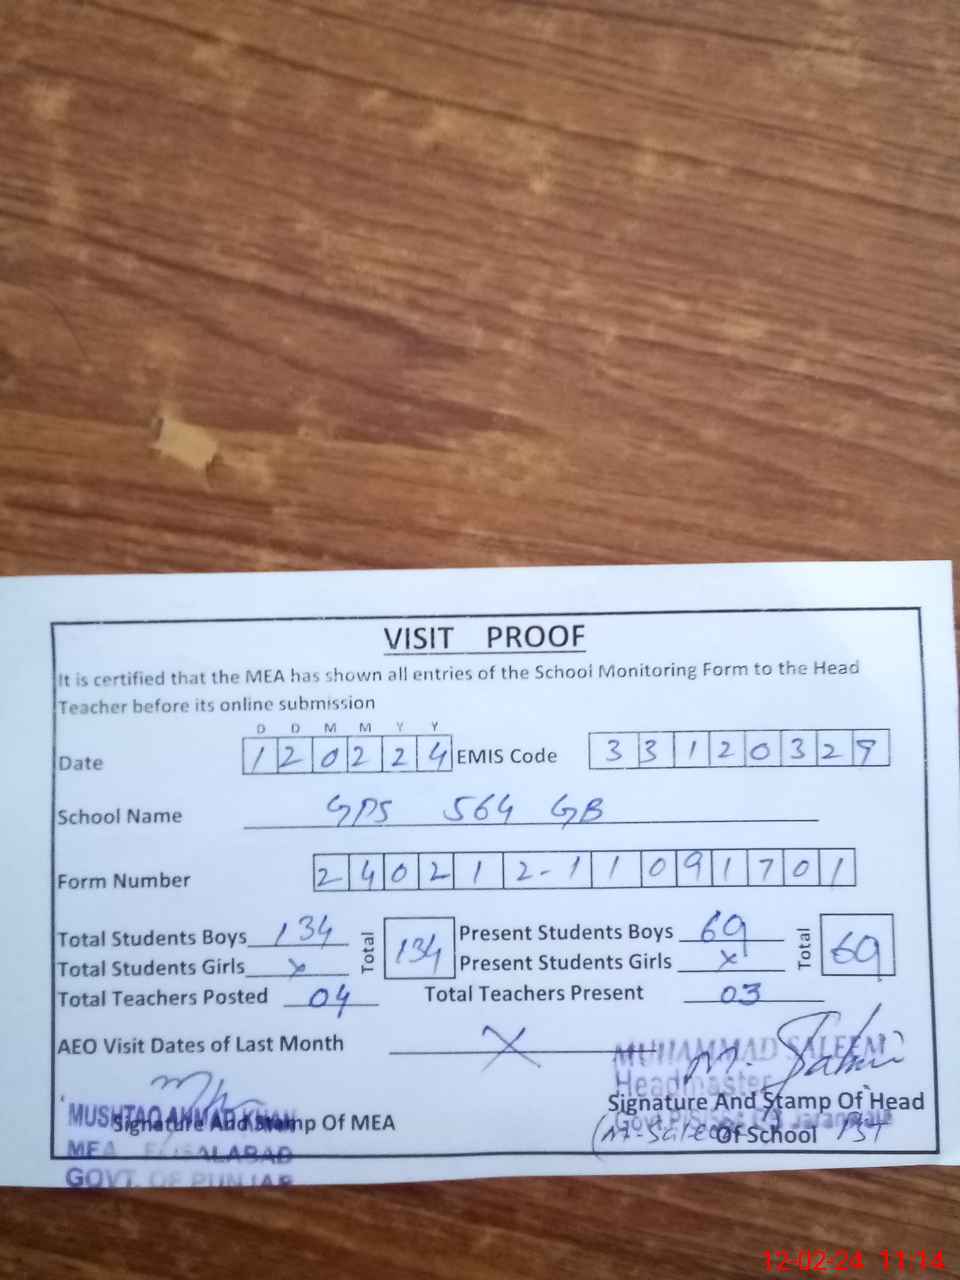 VISIT PROOF
It is certified that the MEA has shown all entries of the School Monitoring Form to the Head
Teacher before its online submission
D D M M Y Y
Date 1 2 0 2 2 4 EMIS Code 3 3 1 2 0 3 2 9
School Name GPS 564 GB
Form Number 2 4 0 2 1 2 - 1 1 0 9 1 7 0 1
Total Students Boys 134 Total 134 Present Students Boys 69 Total 69
Total Students Girls x Present Students Girls x
Total Teachers Posted 04 Total Teachers Present 03
AEO Visit Dates of Last Month X
MUHAMMAD SALEEM
Headmaster
Signature And Stamp Of Head
Of School PST
MUSHTAQ AHMAD KHAN
Signature And Stamp Of MEA
MEA FAISALABAD
GOVT. OF PUNJAB
12-02-24 11:14